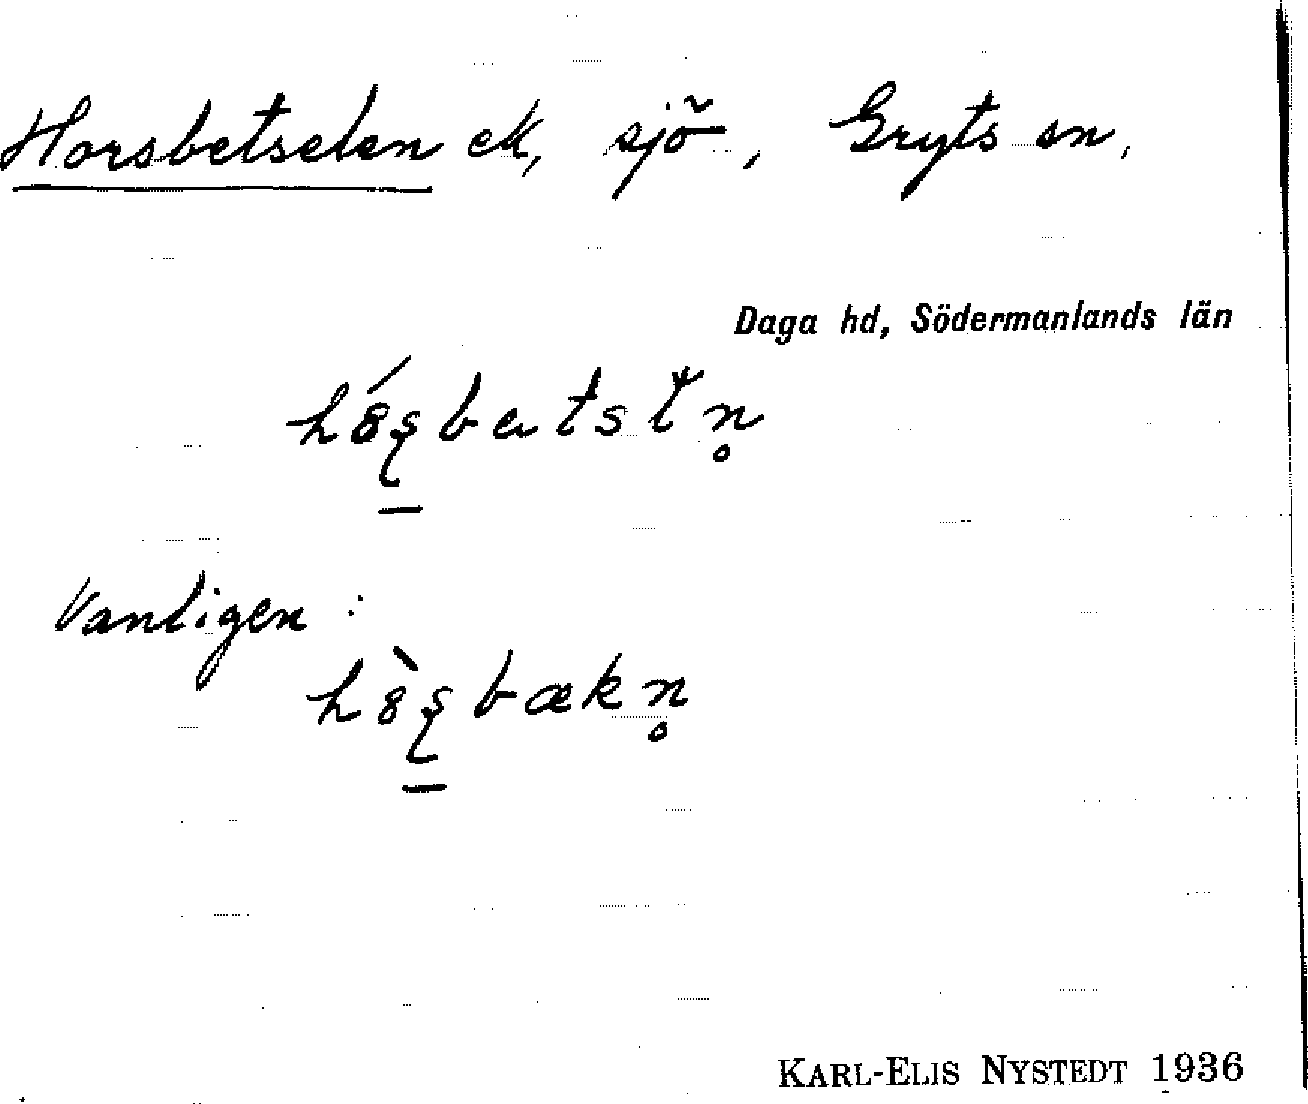 Horsbetselen ek, sjö, Gryts sn,
Daga hd, Södermanlands län
Vanligen:
KARL-ELIS NYSTEDT 1936